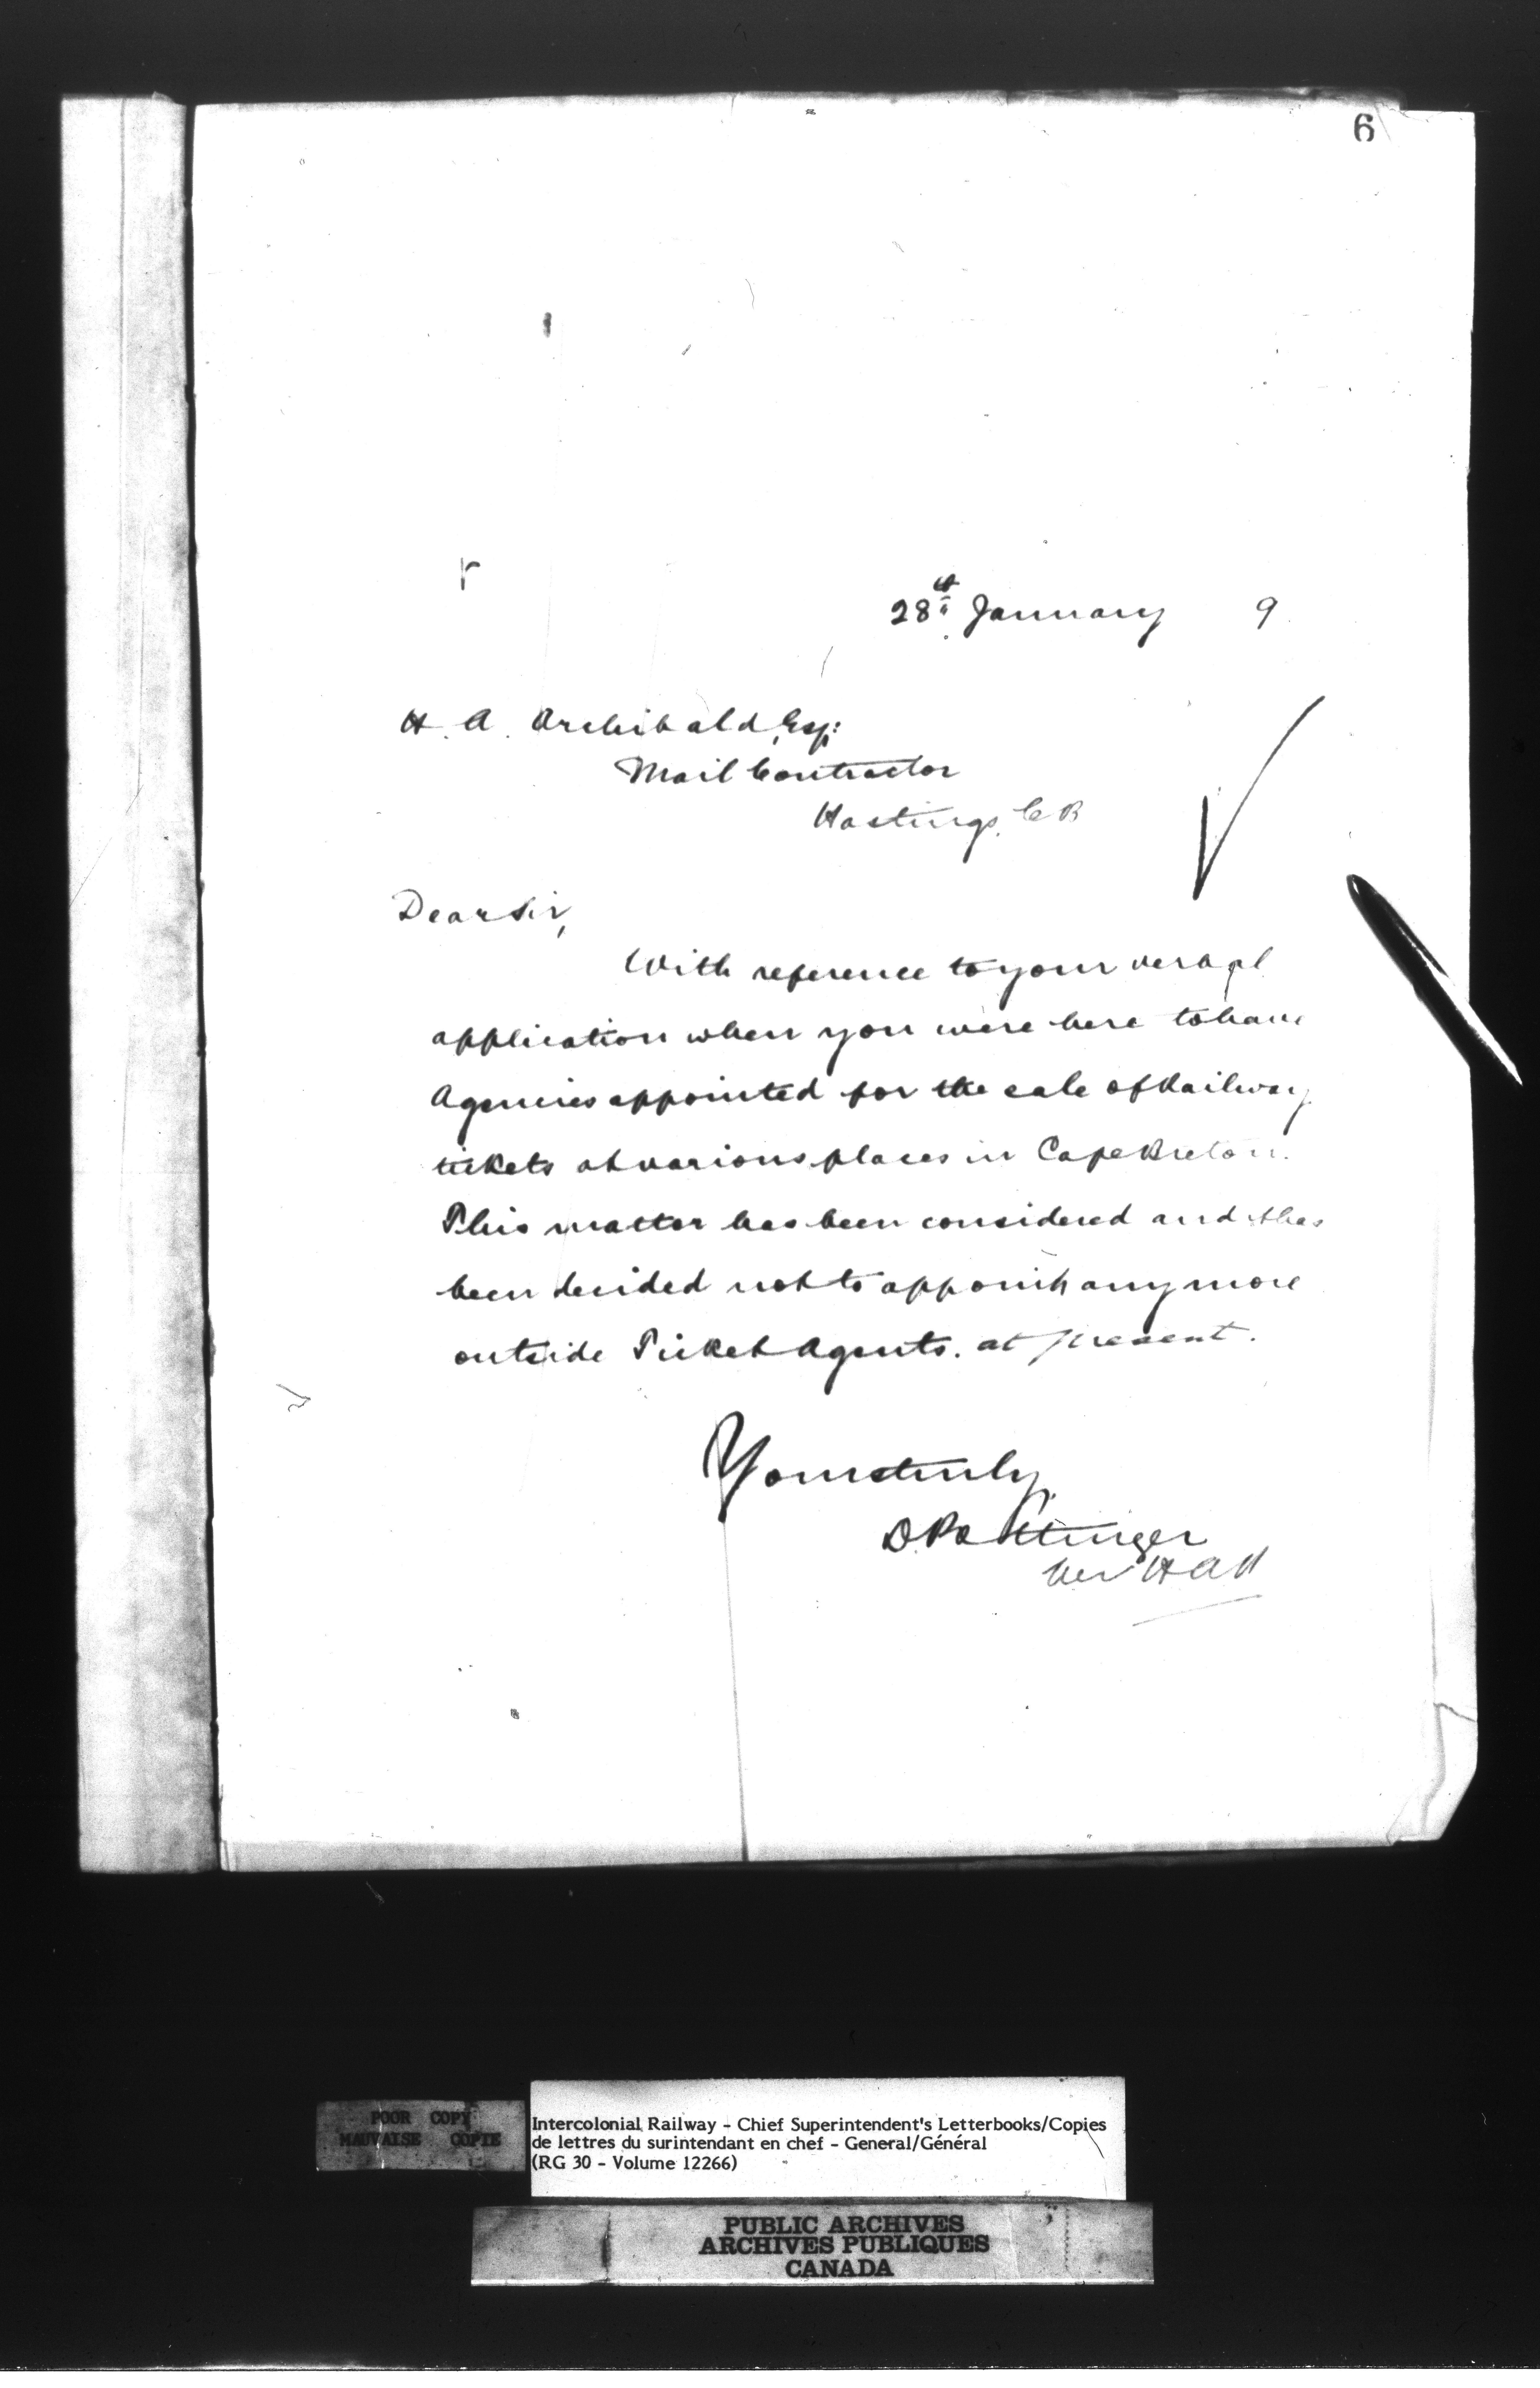 6
28th January 9
H. A. Archibald, Esq:
Mail Contractor
Hastings, C B
Dear Sir,
With reference to your verbal
application when you were here to have
Agencies appointed for the sale of Railway
tickets at various places in Cape Breton.
This matter has been considered and it has
been decided not to appoint any more
outside Ticket Agents. at present.
Yours truly,
D. Pottinger
POOR COPY
MAUVAISE COPIE
Intercolonial Railway - Chief Superintendent's Letterbooks/Copies
de lettres du surintendant en chef - General/Général
(RG 30 - Volume 12266)
PUBLIC ARCHIVES
ARCHIVES PUBLIQUES
CANADA